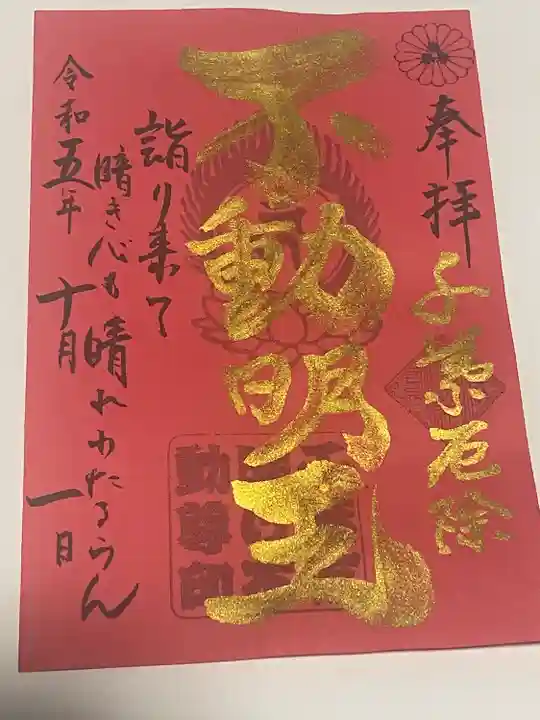 奉拝
千葉厄除
不動明王
詣り来て
暗き心も晴れわたるらん
令和五年十月一日